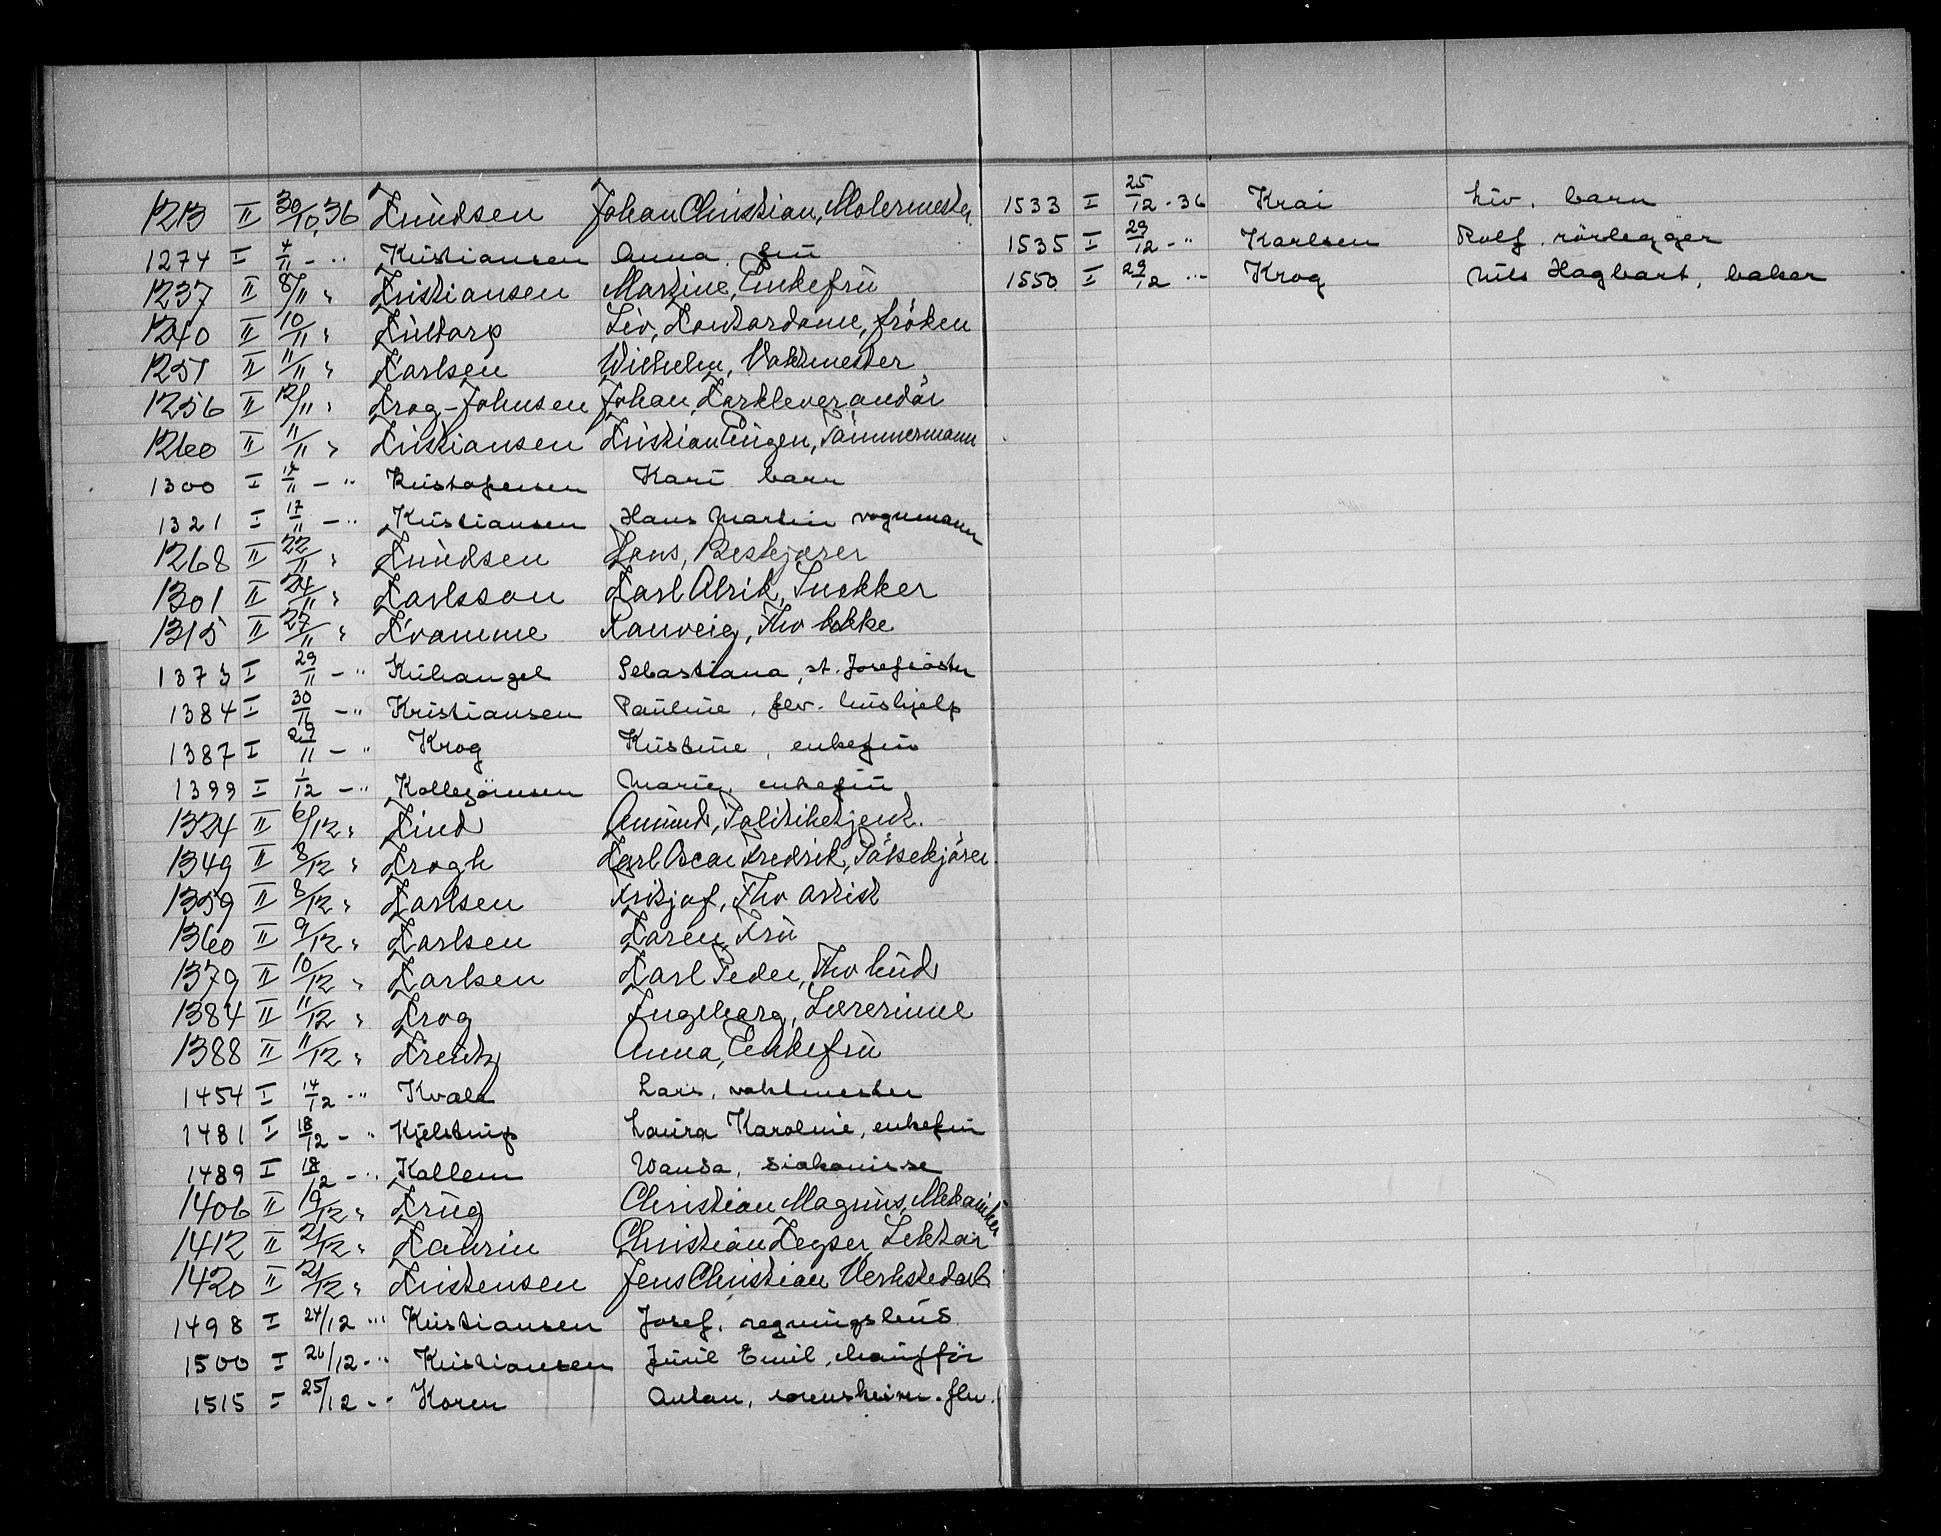 1213 II 30/10.36 Knudsen Johan Christian, Malermester
1274 I 4/11 - " Kristiansen Anna, fru
1237 II 8/11 " Kristiansen Martine, Enkefru
1240 II 10/11 " Kultorp Liv, Kontordame, fröken
1251 II 11/11 " Karlsen Wilhelm, Vaktmester
1256 II 12/11 " Krog-Johnsen Johan, Korkleverandör
1260 II 11/11 " Kristiansen Kristian Tingen, Tömmermann
1300 I 14/11 - " Kristofersen Kari barn
1321 I 17/11 - " Kristiansen Hans Martin vognmann
1268 II 22/11 " Knudsen Hans, Beskjærer
1301 II 24/11 " Karlsson Karl Alrik, Snekker
1315 II 27/11 " Kvamme Ranveig, Fhv kokke
1373 I 29/11 - " Kuhangel Sebastiana, st. Josefsöster
1384 I 30/11 - " Kristiansen Pauline, fhv. hushjelp
1387 I 29/11 - " Krog Kristine, enkefru
1399 I 1/12 - " Kollegörnsen Marie, enkefru
1324 II 6/12 " Kind Amund, Politibetjent.
1349 II 8/12 " Krogh Karl Oscar Fredrik, Pölsekjörer
1359 II 8/12 " Karlsen Fritjof, Fhv artist
1360 II 9/12 " Karlsen Karen Fru
1379 II 10/12 " Karlsen Karl Peder, Fhv bud
1384 II 11/12 " Krog Ingeborg, Lærerinne
1388 II 11/12 " Kreutz Anna, Enkefru
1454 I 14/12 - " Kvale Lars, vaktmester
1481 I 18/12 - " Kjelstrup Laura Karoline, enkefru
1489 I 18/12 - " Kallem Wanda, diakonisse
1406 II 19/12 " Krug Christian Magnus, Mekaniker
1412 II 21/12 " Kaurin Christian Keyser, Lektor
1420 II 21/12 " Kristensen Jens Christian Verkstedarb
1498 I 24/12 " Kristiansen Josef, regningsbud
1500 I 26/12 - " Kristiansen Juul Emil, chaufför
1515 I 25/12 - " Koren Anton, fhv.
1533 I 25/12 - 36 Krai Liv, barn
1535 I 29/12 - " Karlsen Rolf, rörlegger
1550 I 29/12 " Krog Nils Hagbart, baker